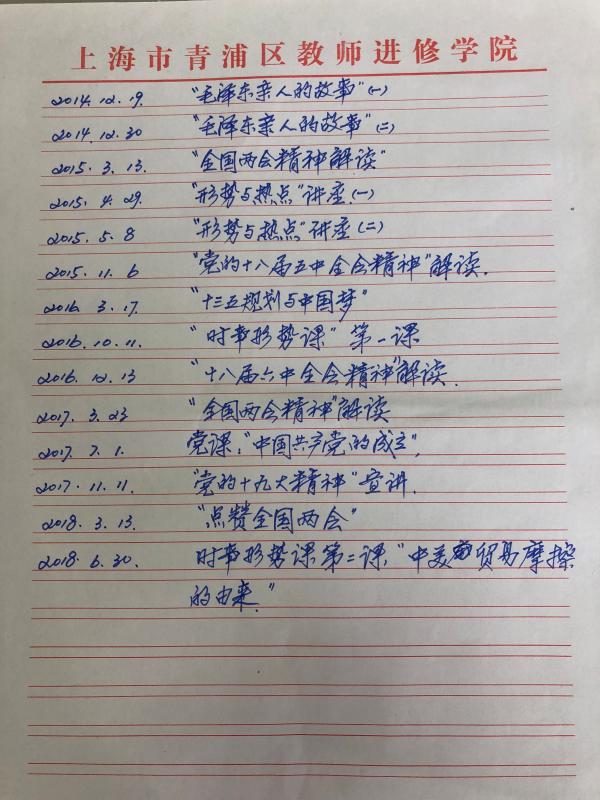 上海市青浦区教师进修学院
2014.12.19. "毛泽东亲人的故事"(一)
2014.12.30 "毛泽东亲人的故事"(二)
2015.3.13. "全国两会精神解读"
2015.4.29. "形势与热点"讲座(一)
2015.5.8 "形势与热点"讲座(二)
2015.11.6 "党的十八届五中全会精神"解读.
2016.3.17. "十三五规划与中国梦"
2016.10.11. "时事形势课"第一课
2016.12.13 "十八届六中全会精神"解读.
2017.3.23 "全国两会精神"解读
2017.7.1. 党课:"中国共产党的成立".
2017.11.11. "党的十九大精神"宣讲.
2018.3.13. "点赞全国两会"
2018.6.30. 时事形势课第二课."中美贸易摩擦
的由来."